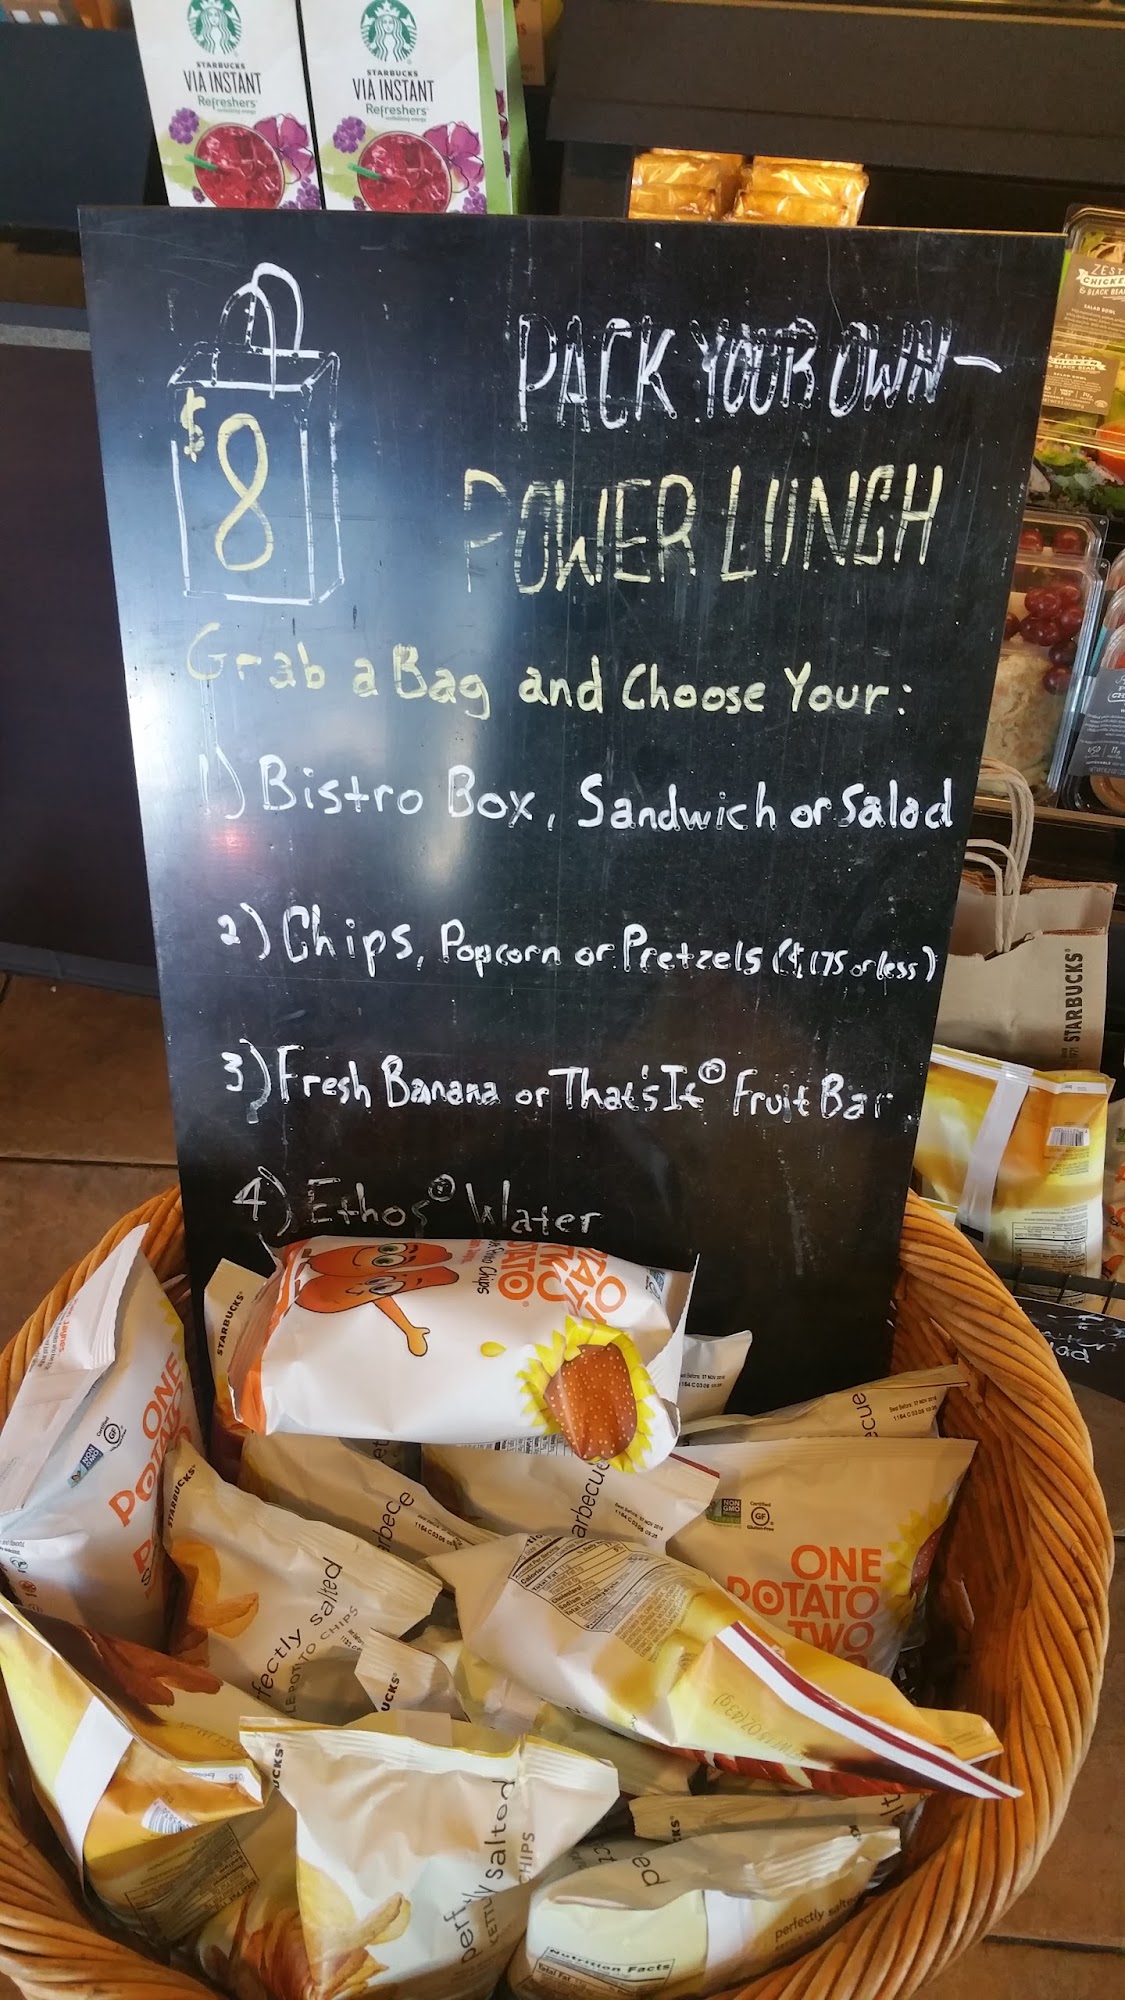 STARBUCKS
VIA INSTANT
Refreshers
STARBUCKS
VIA INSTANT
Refreshers
$8
PACK YOUR OWN-
POWER LUNCH
Grab a Bag and Choose Your:
1) Bistro Box, Sandwich or Salad
2) Chips, Popcorn or Pretzels ($1.75 or less)
3) Fresh Banana or That's It® Fruit Bar
4) Ethos® Water
CHICKEN
& BLACK BEAN
SALAD BOWL
STARBUCKS®
STARBUCKS®
ONE
POTATO
NON
GMO
GF
STARBUCKS®
perfectly salted
CHIPS
arbecue
NON
GMO
Certified
GF
Gluten-Free
ONE
POTATO
TWO
perfectly salted
KETTLE
CHIPS
perfectly salted
Nutrition Facts
Total Fat